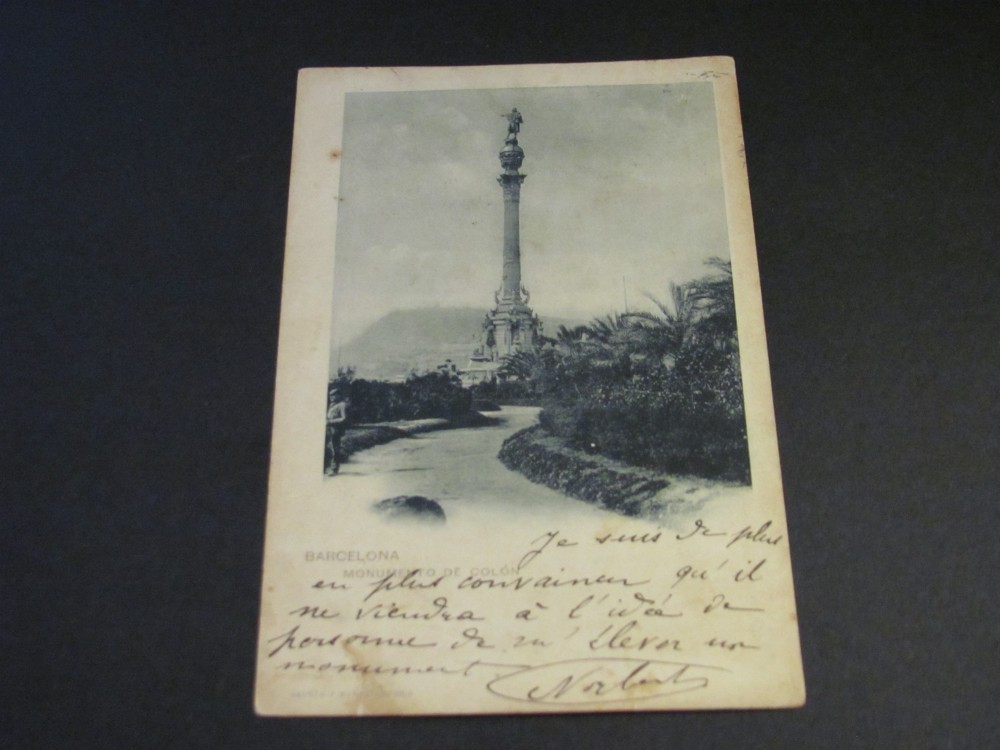 BARCELONA
MONUMENTO DE COLÓN
Je suis de plus
en plus convaincu qu'il
ne viendra à l'idée de
personne de m'élever un
monument
Norbert